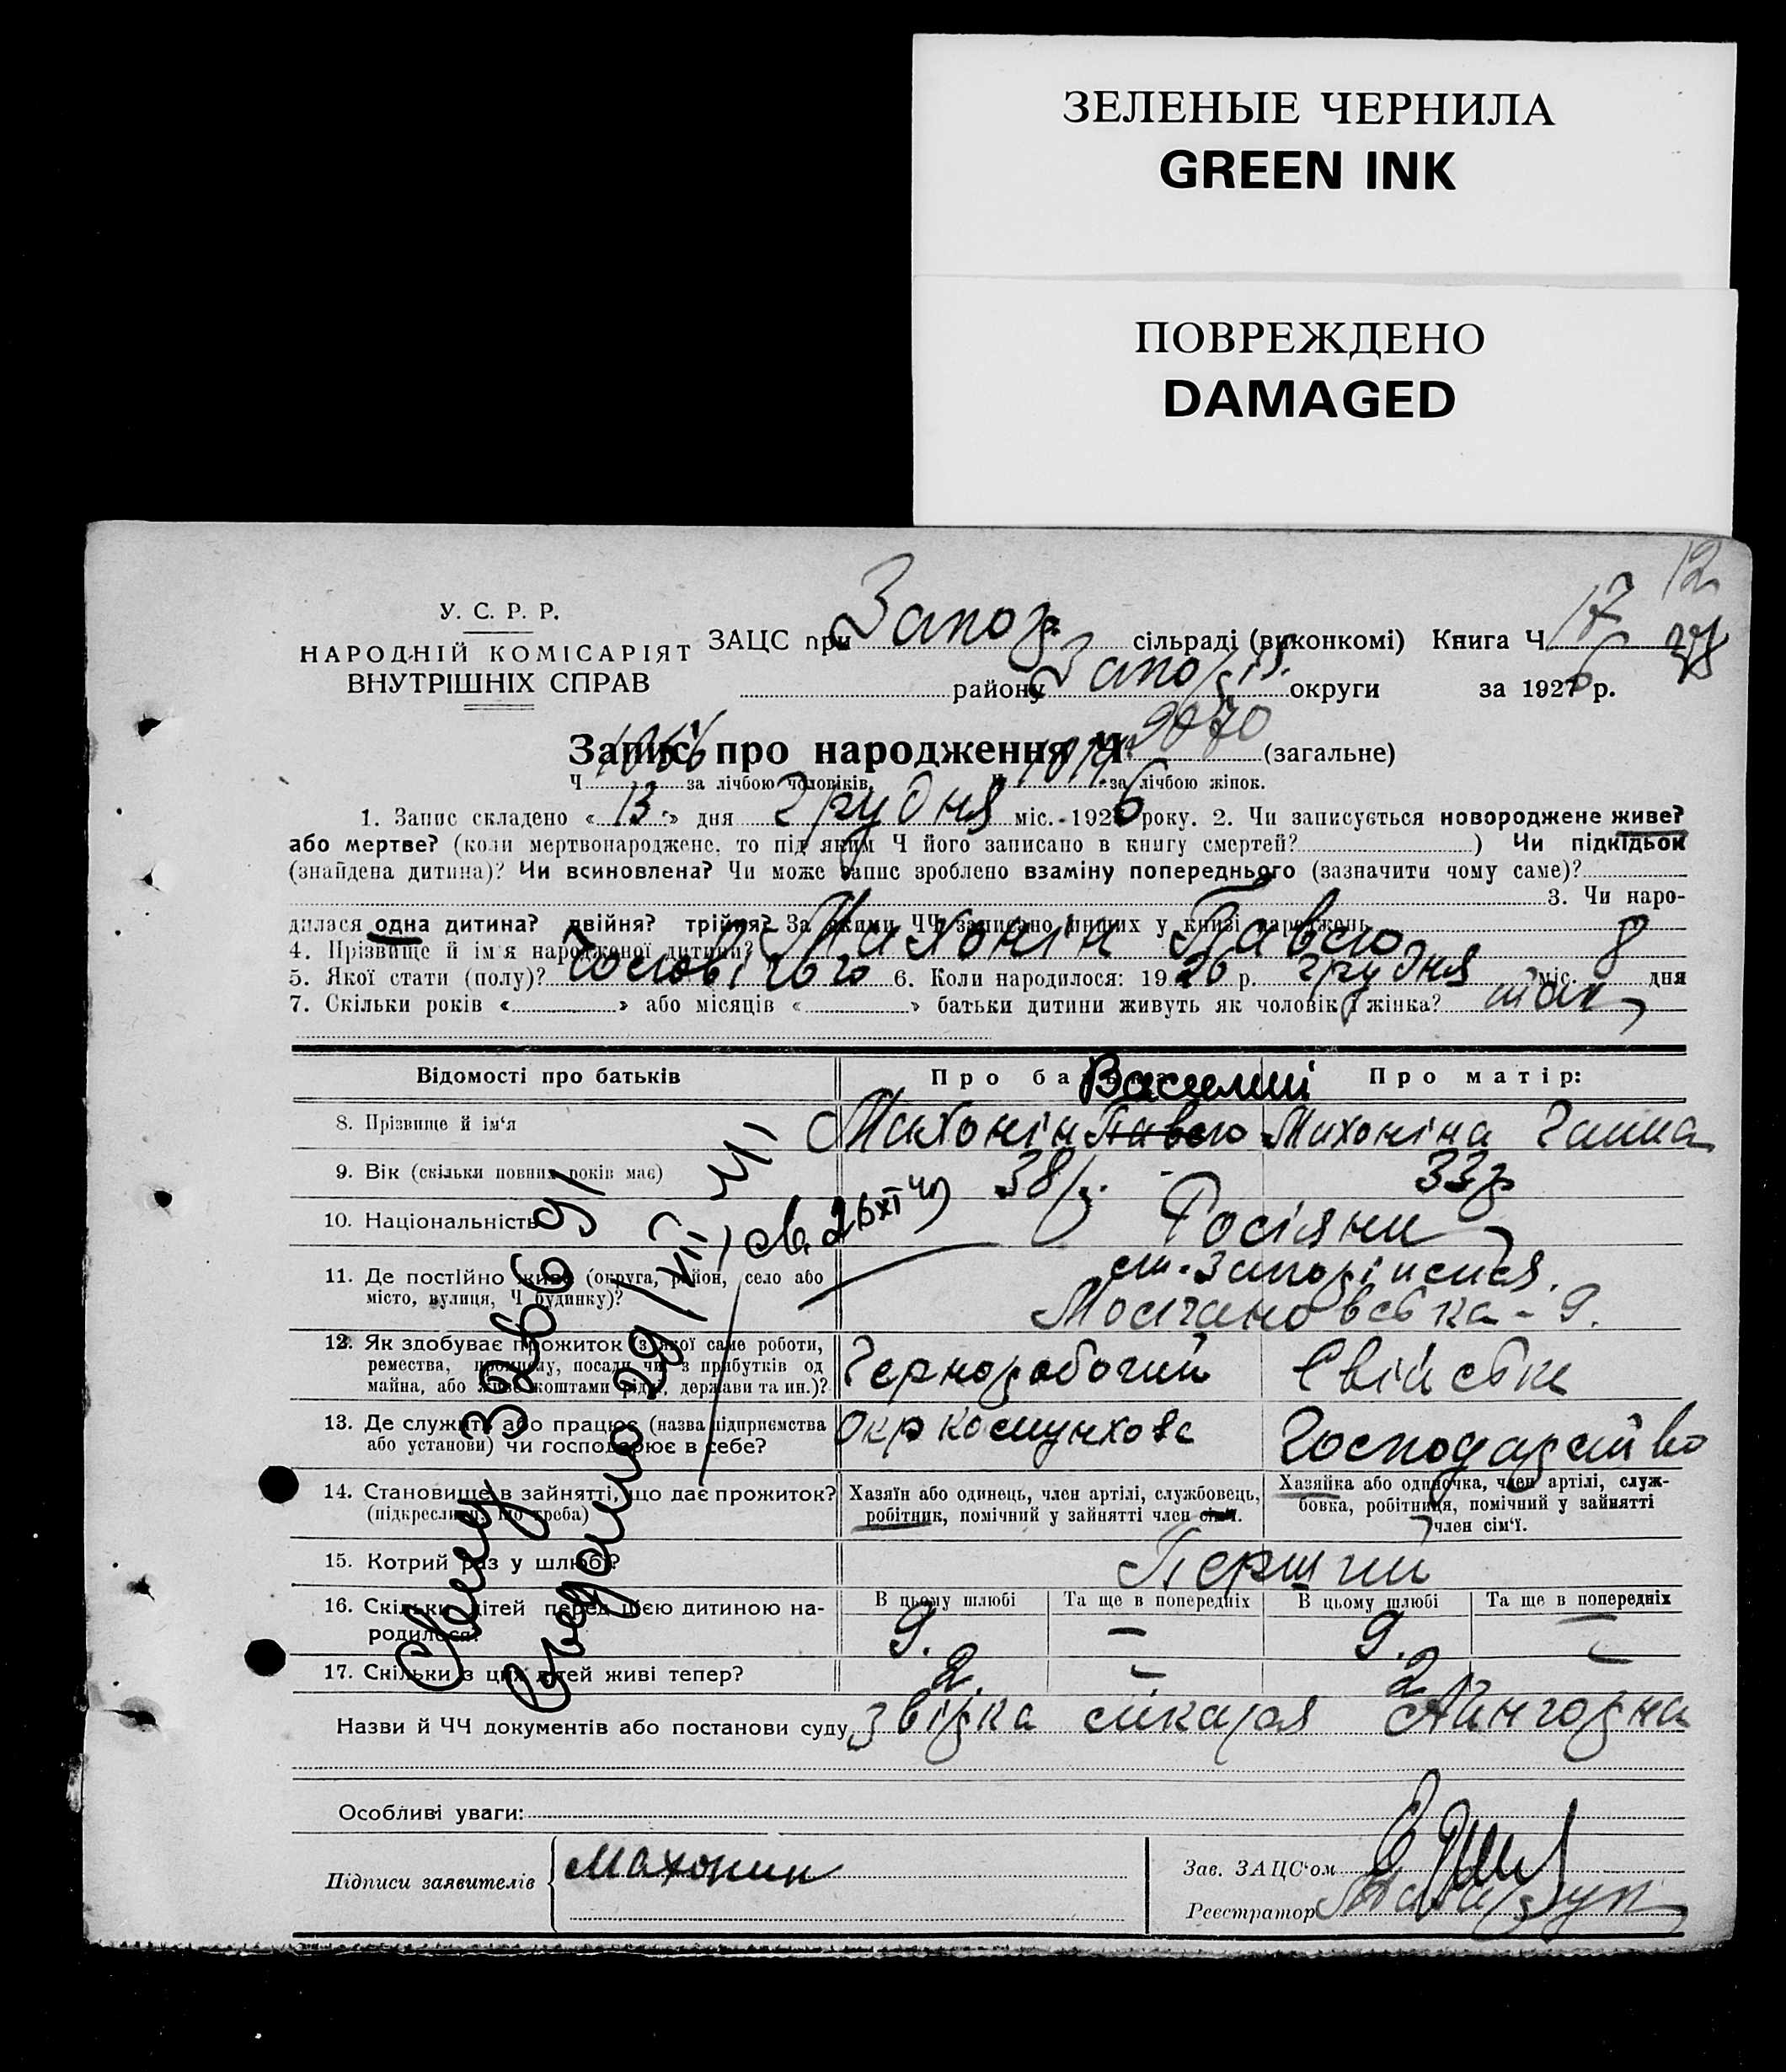 ЗЕЛЕНЫЕ ЧЕРНИЛА
GREEN INK
ПОВРЕЖДЕНО
DAMAGED
12
У. С. Р. Р.
НАРОДНІЙ КОМІСАРІЯТ
ВНУТРІШНІХ СПРАВ
ЗАЦС при Запор. сільраді (виконкомі) Книга Ч 17
району Запоріз. округи за 1926 р.
Запис про народження Ч 2070 (загальне)
Ч 1056 за лічбою чоловіків Ч 1014 за лічбою жінок.
1. Запис складено « 13 » дня грудня міс. 1926 року. 2. Чи записується новороджене живе?
або мертве? (коли мертвонароджене, то під яким Ч його записано в книгу смертей? ) Чи підкідьок
(знайдена дитина)? Чи всиновлена? Чи може запис зроблено взаміну попереднього (зазначити чому саме)?
3. Чи наро-
дилася одна дитина? двійня? трійня? За якими ЧЧ записано инших у книзі народжень
4. Прізвище й ім'я народженої дитини? Махонін Павло
5. Якої стати (полу)? Чоловічого 6. Коли народилося: 1926 р. грудня міс. 8 дня
7. Скільки років « » або місяців « » батьки дитини живуть як чоловік і жінка? так
Відомості про батьків Про ба Василий Про матір:
8. Прізвище й ім'я Махонін Павло Махоніна Ганна
9. Вік (скільки повних років має) 38 р. 33 р
10. Національність Росіяни
11. Де постійно живе (округа, район, село або
місто, вулиця, Ч будинку)? ст. Запоріжжя.
9.
12. Як здобуває прожиток з якої саме роботи,
ремества, промислу, посади чи з прибутків од
майна, або живе коштами рідні, держави та ин.)? Чернорабочий Свійське
13. Де служить або працює (назва підприємства
або установи) чи господарює в себе? Окр Господарство
14. Становище в зайнятті, що дає прожиток?
(підкреслити, що треба)
Хазяїн або одинець, член артілі, службовець,
робітник, помічний у зайнятті член сім'ї.
Хазяйка або одиночка, член артілі, служ-
бовка, робітниця, помічний у зайнятті
член сім'ї.
15. Котрий раз у шлюбі? Перший
16. Скільки дітей перед цією дитиною на-
родилося? В цьому шлюбі Та ще в попередніх В цьому шлюбі Та ще в попередніх
9. – 9. –
17. Скільки з цих дітей живі тепер? 2. – 2 –
Назви й ЧЧ документів або постанови суду звірка лікаря
Особливі уваги:
Підписи заявителів Махонин
Зав. ЗАЦС'ом
Реєстратор